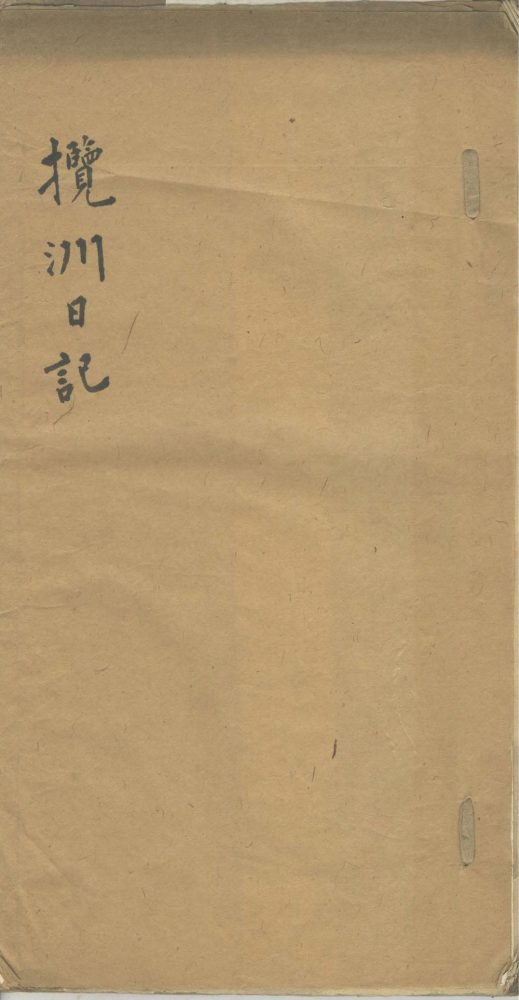 攬洲日記